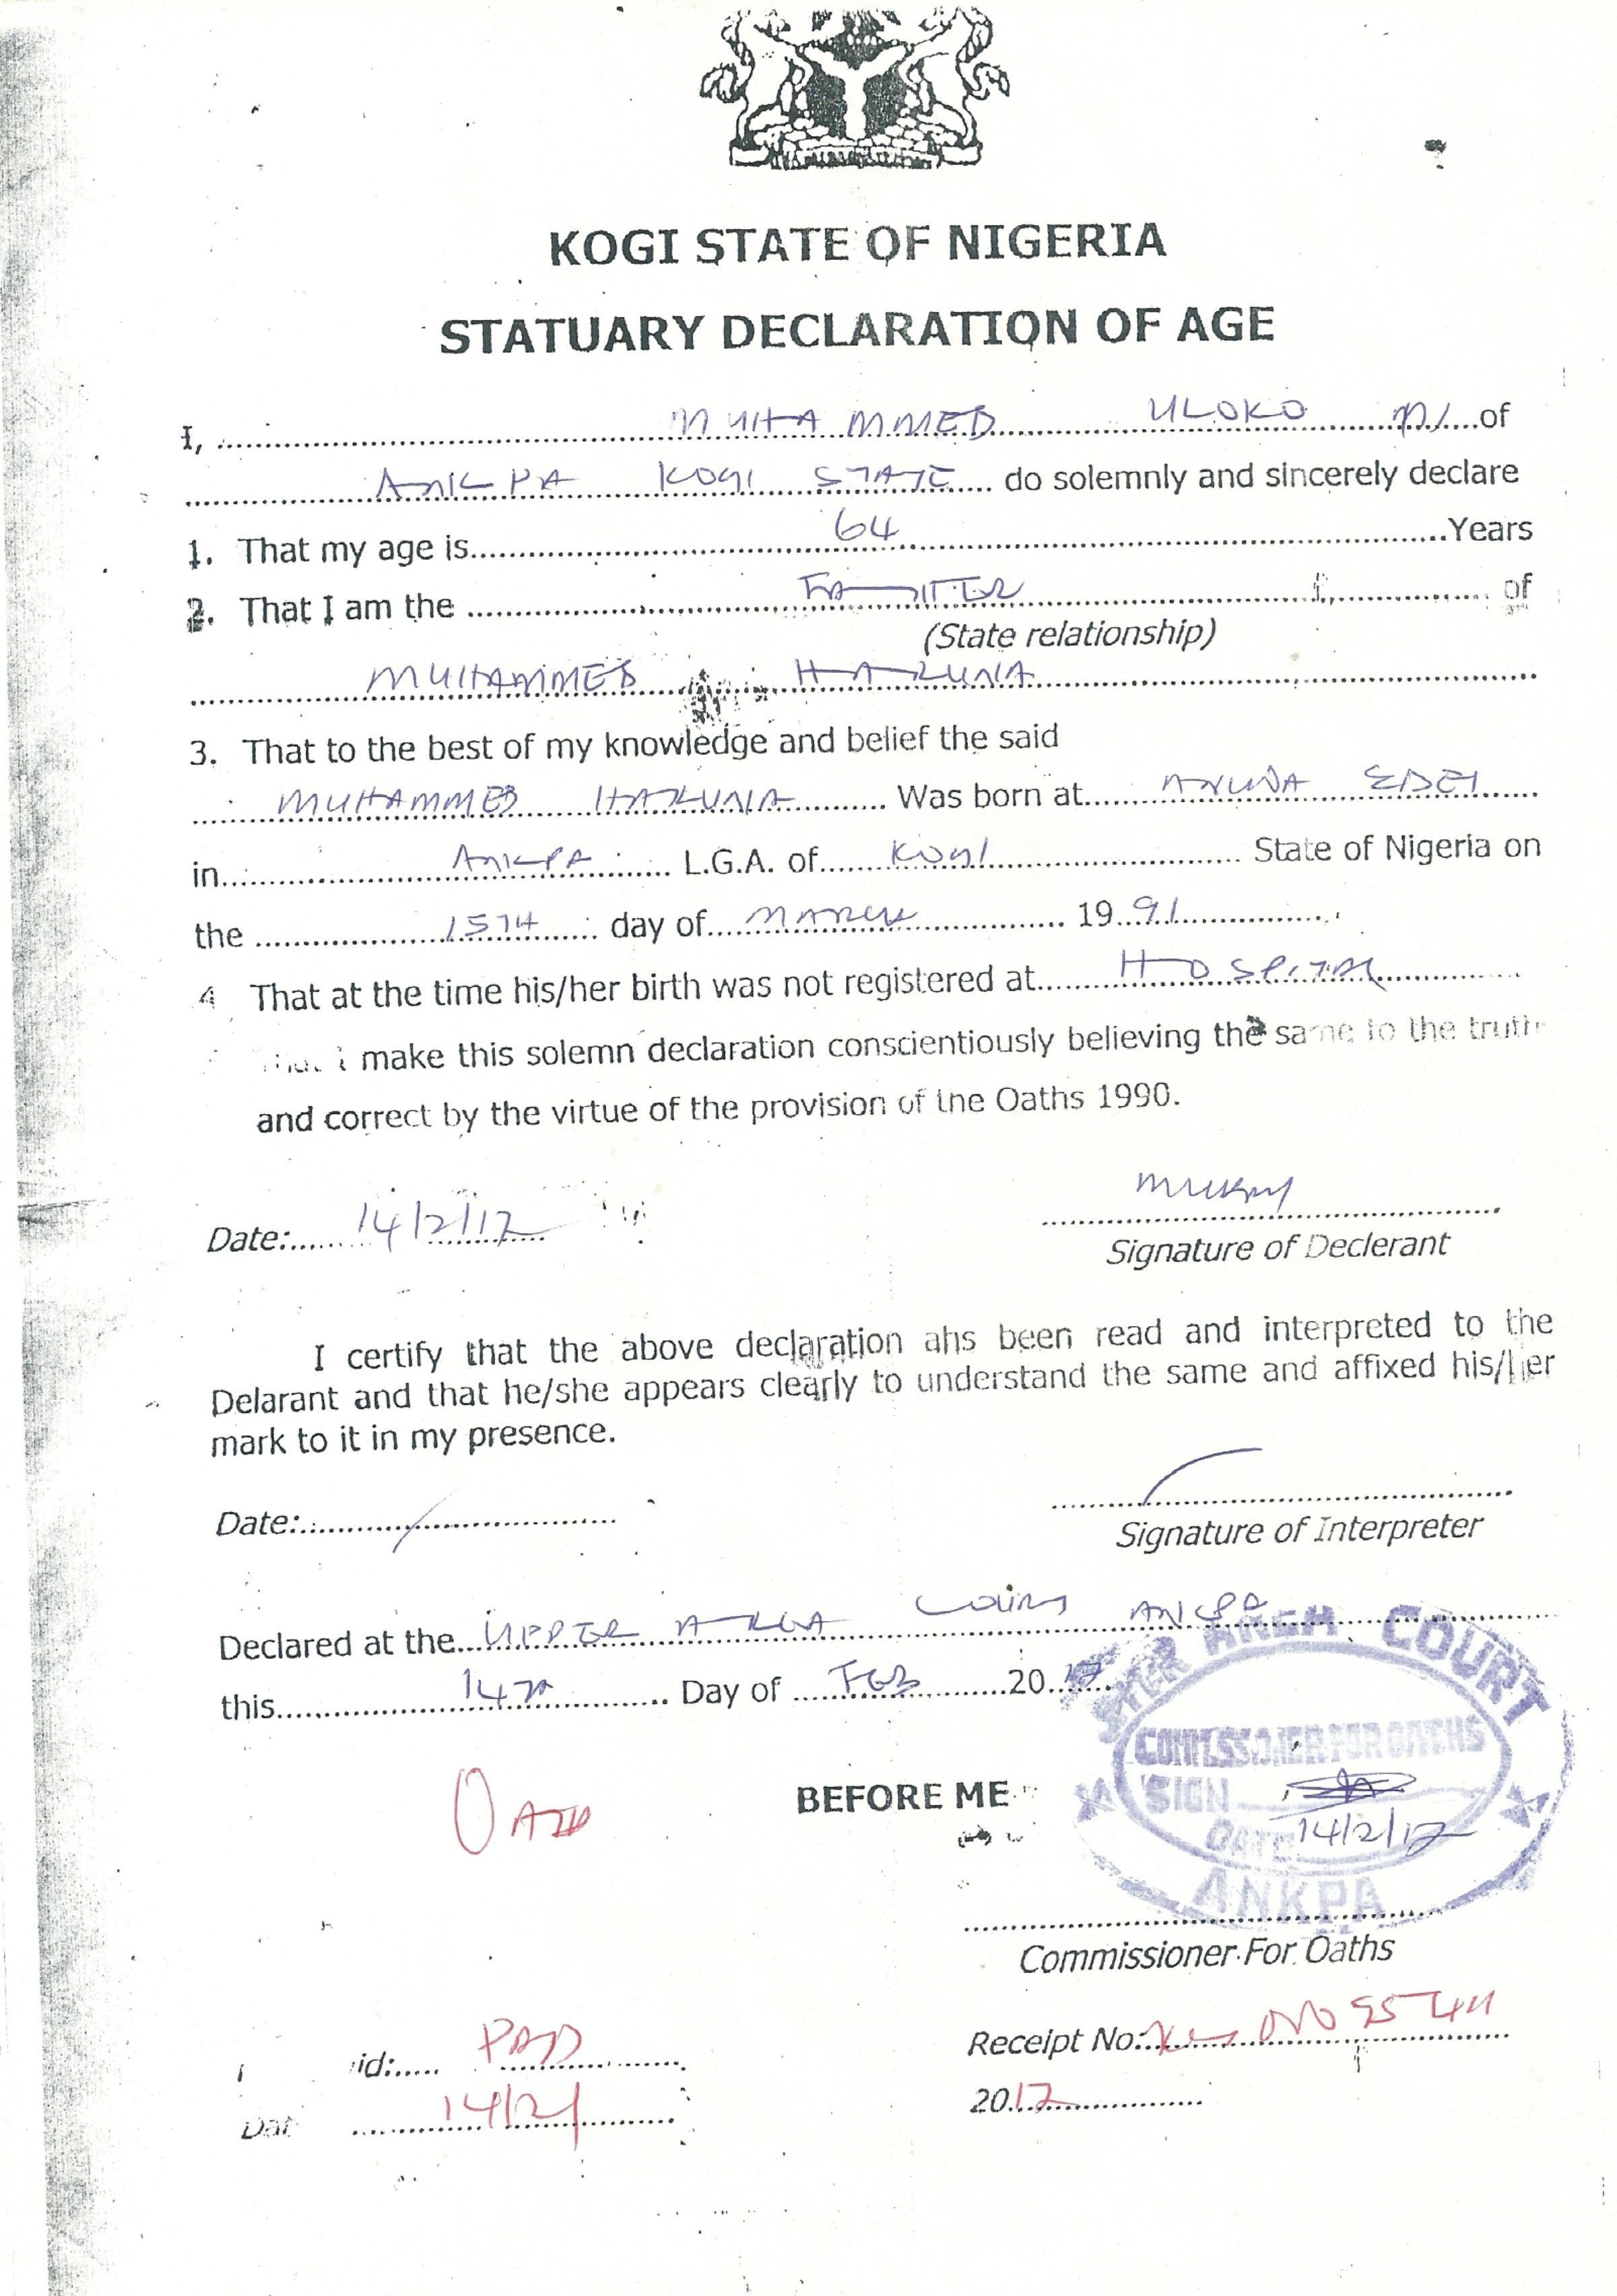 KOGI STATE OF NIGERIA
STATUARY DECLARATION OF AGE
I, MUHAMMED ULOKO of
ANKPA KOGI STATE do solemnly and sincerely declare
1. That my age is 64 Years
2. That I am the FATHER of
(State relationship)
MUHAMMED HARUNA
3. That to the best of my knowledge and belief the said
MUHAMMED HARUNA Was born at
in ANKPA L.G.A. of KOGI State of Nigeria on
the 15TH day of MARCH 1991
4 That at the time his/her birth was not registered at HOSPITAL
I make this solemn declaration conscientiously believing the same to the truth
and correct by the virtue of the provision of the Oaths 1990.
Date: 14/2/17
Signature of Declerant
I certify that the above declaration ahs been read and interpreted to the
Delarant and that he/she appears clearly to understand the same and affixed his/her
mark to it in my presence.
Date:
Signature of Interpreter
Declared at the UPPER AREA COURT ANKPA
this 14TH Day of FEB 2017
UPPER AREA COURT
COMMISSIONER FOR OATHS
BEFORE ME
SIGN
DATE 14/2/17
ANKPA
Commissioner For Oaths
Receipt No:
id: PAID
14/2/
2017